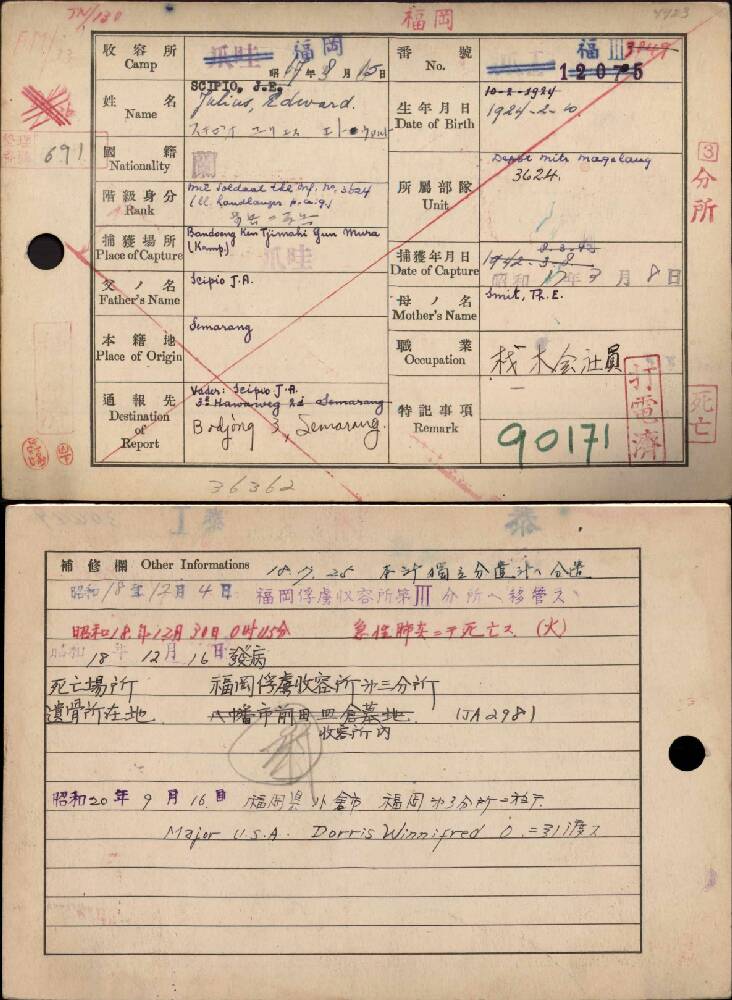 TN/130
福岡
4923
收容所 Camp
福岡
昭 17年8月15日
番號 No.
福 III
12075
姓名 Name
SCIPIO, J.E.
Julius, Edward.
生年月日 Date of Birth
10-2-1924
1924-2-10
691
國籍 Nationality
蘭
所屬部隊 Unit
Depot Mits Magelang
3624.
3
分所
階級身分 Rank
Mil. Soldaat Inf. No. 3624
(ll. handlanger p.a.g.)
捕獲場所 Place of Capture
Bandoeng Ken Tjimahi Gun Mura
(Kamp)
爪哇
捕獲年月日 Date of Capture
8-3-42
1942-3-8
昭和17年3月8日
父ノ名 Father's Name
Scipio J.A.
母ノ名 Mother's Name
Smit, Th. E.
本籍地 Place of Origin
Semarang
職業 Occupation
伐木会社員
通報先 Destination of Report
Vader: Scipio J.A.
Semarang
Bodjong 3, Semarang.
特記事項 Remark
90171
打電濟
死亡
36362
補修欄 Other Informations
昭和18年12月4日 福岡俘虜收容所第III分所ヘ移管ス
昭和18年12月30日0時15分 急性肺炎ニテ死亡ス (火)
昭和18年12月16日發病
死亡場所 福岡俘虜収容所第三分所
遺骨所在地 八幡市前田皿倉墓地 IJA 2981
收容所内
昭和20年9月16日 福岡県小倉市 福岡第3分所ニ於テ
Major U.S.A. Dorris Winnifred O. ニ引渡ス